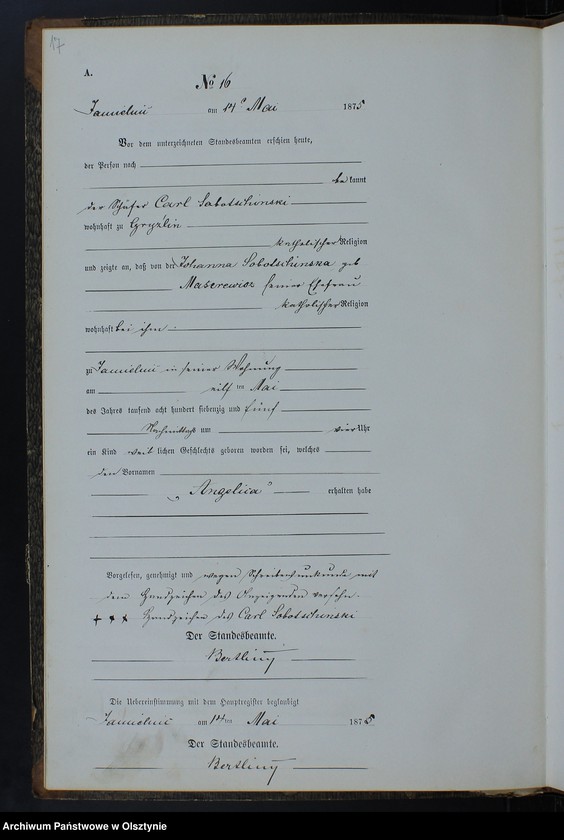 17
A.
No 16
Jamielnik am 14n Mai 1875
Vor dem unterzeichneten Standesbeamten erschien heute,
der Person nach
be kannt
der Schäfer Carl Sabotschinski
wohnhaft zu Gryzlin
katholischer Religion
und zeigte an, daß von der Johanna Sobotschinska geb
Maserewicz seiner Ehefrau
katholischer Religion
wohnhaft bei ihm
zu in seiner Wohnung
am eilf ten Mai
des Jahres tausend acht hundert siebenzig und fünf
Nachmittags um vier Uhr
ein Kind weib lichen Geschlechts geboren worden sei, welches
den Vornamen
„Angelica“ erhalten habe
Vorgelesen, genehmigt und wegen Schreibensunkunde mit
dem Handzeichen des Anzeigenden versehn.
+ + + Handzeichen des Carl Sobotschinski
Der Standesbeamte.
Bertling
Die Uebereinstimmung mit dem Hauptregister beglaubigt
am 14ten Mai 1875
Der Standesbeamte.
Bertling
Archiwum Państwowe w Olsztynie